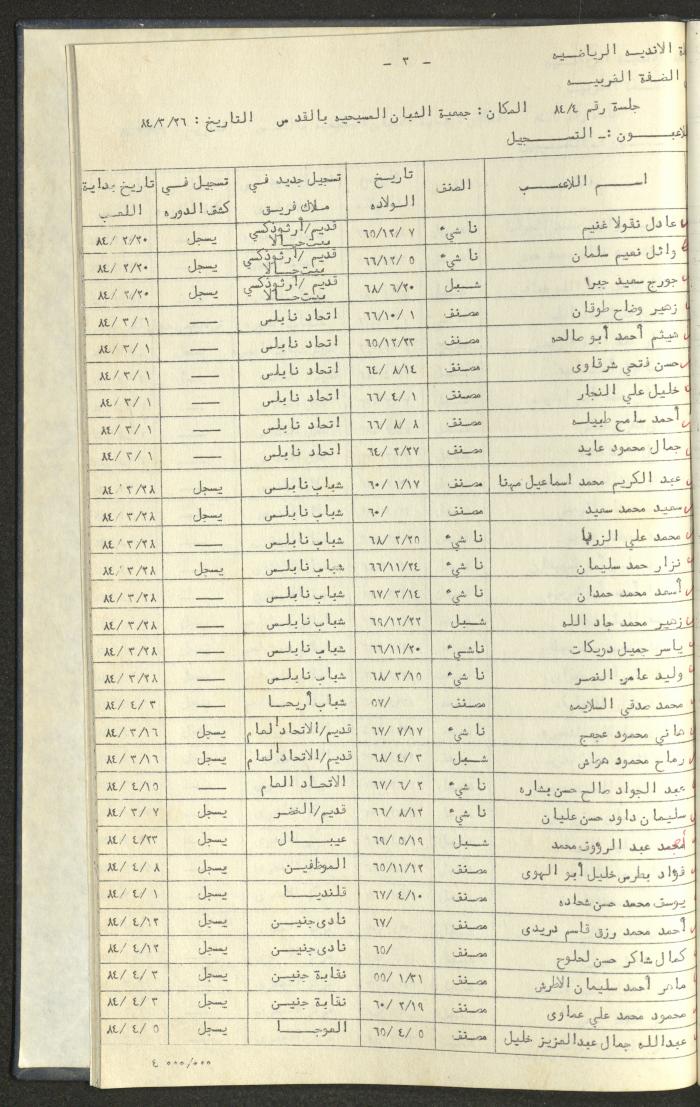 - ٣ -
ة الانديه الرياضيه
الضفة الغربيه
جلسة رقم ٨٤/٤ المكان : جمعية الشبان المسيحيه بالقدس التاريخ : ٨٤/٣/٢٦
لاعبون :ـ التسجيل
اسم اللاعب الصنف تاريخ الولاده تسجيل جديد في ملاك فريق تسجيل في كشف الدوره تاريخ بداية اللعب
عادل نقولا غنيم ناشيء ٦٥/١٢/ ٧ قديم/أرثوذكسي بيت جالا يسجل ٨٤/ ٢/٢٠
وائل نعيم سلمان ناشيء ٦٦/١٢/ ٥ قديم/أرثوذكسي بيت جالا يسجل ٨٤/ ٢/٢٠
جورج سعيد جبرا شبل ٦٨/ ٦/٢٠ قديم/أرثوذكسي بيت جالا يسجل ٨٤/ ٢/٢٠
زهير وضاح طوقان مصنف ٦٦/١٠/ ١ اتحاد نابلس — ٨٤/ ٣/ ١
هيثم أحمد أبو صالحه مصنف ٦٥/١٢/٢٣ اتحاد نابلس — ٨٤/ ٣/ ١
حسن فتحي شرقاوى مصنف ٦٤/ ٨/١٤ اتحاد نابلس — ٨٤/ ٣/ ١
خليل علي النجار مصنف ٦٦/ ٤/ ١ اتحاد نابلس — ٨٤/ ٣/ ١
أحمد سامح طبيله مصنف ٦٦/ ٨/ ٨ اتحاد نابلس — ٨٤/ ٣/ ١
جمال محمود عايد مصنف ٦٤/ ٢/٢٧ اتحاد نابلس — ٨٤/ ٣/ ١
عبد الكريم محمد اسماعيل مهنا مصنف ٦٠/ ١/١٧ شباب نابلس يسجل ٨٤/ ٣/٢٨
سعيد محمد سعيد مصنف ٦٠/ شباب نابلس يسجل ٨٤/ ٣/٢٨
محمد علي ناشيء ٦٨/ ٢/٢٥ شباب نابلس — ٨٤/ ٣/٢٨
نزار حمد سليمان ناشيء ٦٦/١١/٢٤ شباب نابلس يسجل ٨٤/ ٣/٢٨
أسعد محمد حمدان ناشيء ٦٧/ ٣/١٤ شباب نابلس — ٨٤/ ٣/٢٨
زهير محمد جاد الله شبل ٦٩/١٢/٢٢ شباب نابلس — ٨٤/ ٣/٢٨
ياسر جميل دويكات ناشيء ٦٦/١١/٢٠ شباب نابلس — ٨٤/ ٣/٢٨
وليد عامر النصر ناشيء ٦٨/ ٣/١٥ شباب نابلس — ٨٤/ ٣/٢٨
محمد صدقي السلايمه مصنف ٥٧/ شباب أريحا — ٨٤/ ٤/ ٣
هاني محمود عجعج ناشيء ٦٧/ ٧/١٧ قديم/الاتحاد العام يسجل ٨٤/ ٣/١٦
رماح محمود شبل ٦٨/ ٤/ ٣ قديم/الاتحاد العام يسجل ٨٤/ ٣/١٦
عبد الجواد صالح حسن بشاره ناشيء ٦٧/ ٦/ ٢ الاتحاد العام — ٨٤/ ٤/١٥
سليمان داود حسن عليان ناشيء ٦٦/ ٨/١٢ قديم/الخضر يسجل ٨٤/ ٣/ ٧
أمجد عبد الروؤف محمد شبل ٦٩/ ٥/١٩ عيبال يسجل ٨٤/ ٤/٢٣
فؤاد بطرس خليل أبو الهوى مصنف ٦٥/١١/١٢ الموظفين يسجل ٨٤/ ٤/ ٨
يوسف محمد حسن شحاده مصنف ٦٧/ ٤/١٠ قلنديا يسجل ٨٤/ ٤/ ١
أحمد محمد رزق قاسم دريدى مصنف ٦٧/ نادى جنين يسجل ٨٤/ ٤/١٢
كمال شاكر حسن لحلوح مصنف ٦٥/ نادى جنين يسجل ٨٤/ ٤/١٢
ماهر أحمد سليمان الاطرش مصنف ٥٥/ ١/٣١ نقابة جنين يسجل ٨٤/ ٤/ ٣
محمود محمد علي عماوى مصنف ٦٠/ ٢/١٩ نقابة جنين يسجل ٨٤/ ٤/ ٣
عبدالله جمال عبدالعزيز خليل مصنف ٦٥/ ٤/ ٥ العوجا يسجل ٨٤/ ٤/ ٥
٤ ٠٠٠/٠٠٠